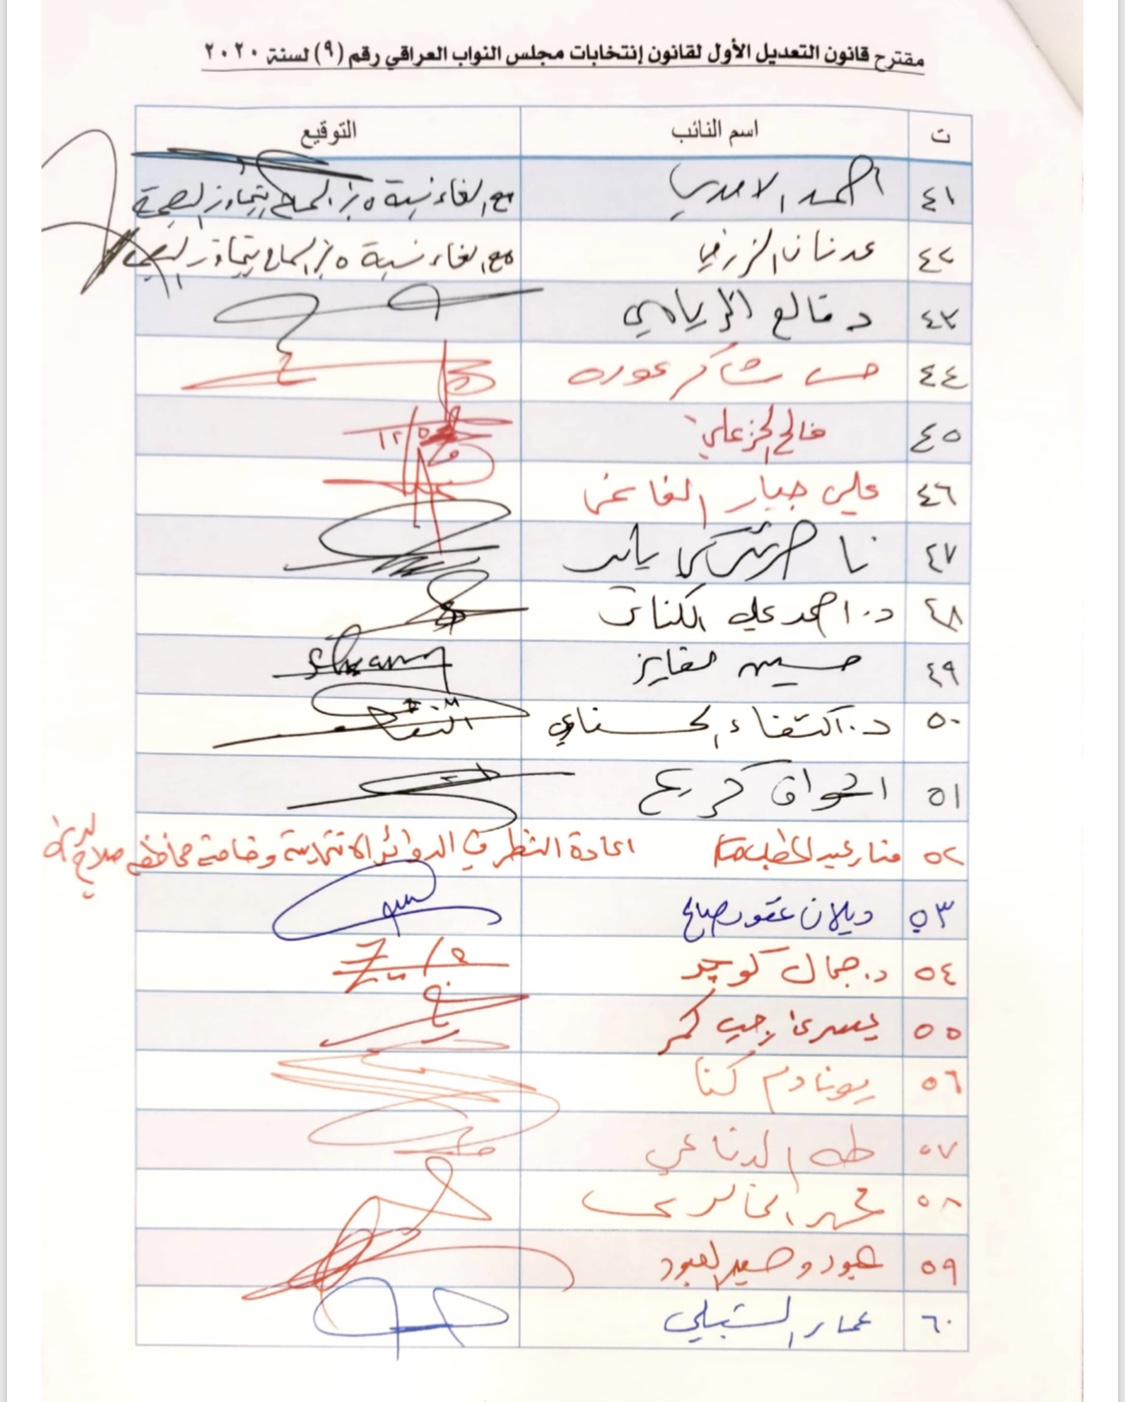 مقترح قانون التعديل الأول لقانون إنتخابات مجلس النواب العراقي رقم (٩) لسنة ٢٠٢٠
ت اسم النائب التوقيع
٤١ احمد الاسدي مع الغاء نسبة
٤٢ عدنان الزرفي مع الغاء نسبة
٤٣ د فالح الزيادي
٤٤ حسن شاكر عوده
٤٥ فالح الخزعلي ١٢/٥
٤٦ علي جبار
٤٧ ناصر تركي ياسر
٤٨ د. احمد علي الكناني
٤٩ حسين
٥٠ د. اكتفاء الحسناوي
٥١ اشواق كريم
٥٢ منار عبد المطلب اعادة النظر في الدوائر الانتخابية وخاصة محافظة صلاح الدين
٥٣ ديلان غفور صالح
٥٤ د. جمال كوجر
٥٥ يسرى رجب كمر
٥٦ يونادم كنا
٥٧ طه الدفاعي
٥٨ محمد الخالدي
٥٩ عبود وحيد العبود
٦٠ عمار الشبلي